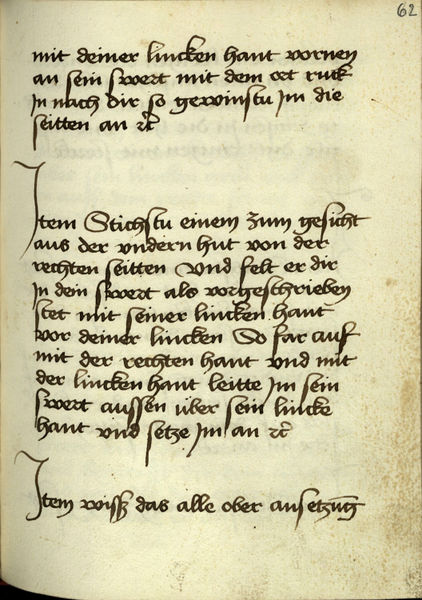 62
mit deiner lincken hant vornen
an sein swert mit dem ort ruck
In nach dir so gewinstu Im die
seitten an rc̄
Item Stichstu einem zum gesicht
aus der vndern hut von der
rechten seitten Vnd felt er dir
In dein swert als vorgeschrieben
stet mit seiner lincken hant
vor deiner lincken So far auf
mit der rechten hant vnd mit
der lincken hant leitte Im sein
swert aussen über sein lincke
hant vnd setze Im an rc̄
Item wiss das alle ober ansetzūg